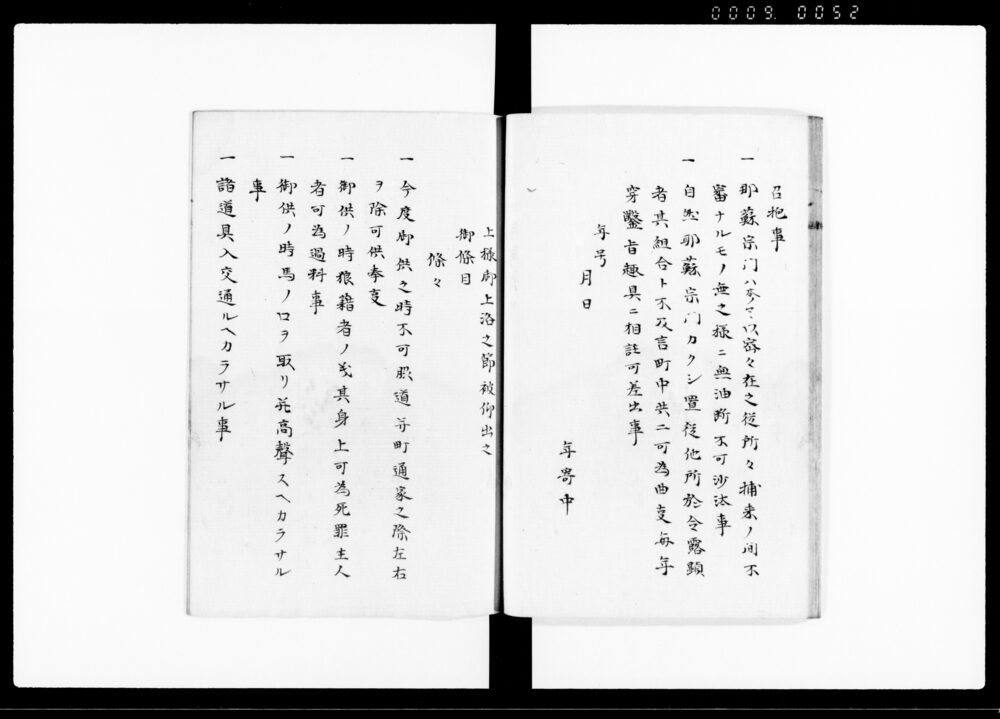 0009. 0052
召抱事
一 耶蘇宗門ハ今以密々在之従所々捕来ノ间不
審ナルモノ無之様ニ無油断不可沙汰事
一 自然耶蘇宗门カクシ置従他所於令露顕
者其組合ト不及言町中共ニ可為曲叓毎年
穿鑿旨趣具ニ相註可差出事
年号月日
年寄中
上様御上洛之節被仰出之
御條目
條々
一 今度御供之時不可脇道并町通家之際左右
ヲ除可供奉叓
一 御供ノ時狼藉者ノ義其身上可為死罪主人
者可為過料事
一 御供ノ時馬ノロヲ取リ并高聲スヘカラサル
事
一 諸道具入交通ルヘカラサル事